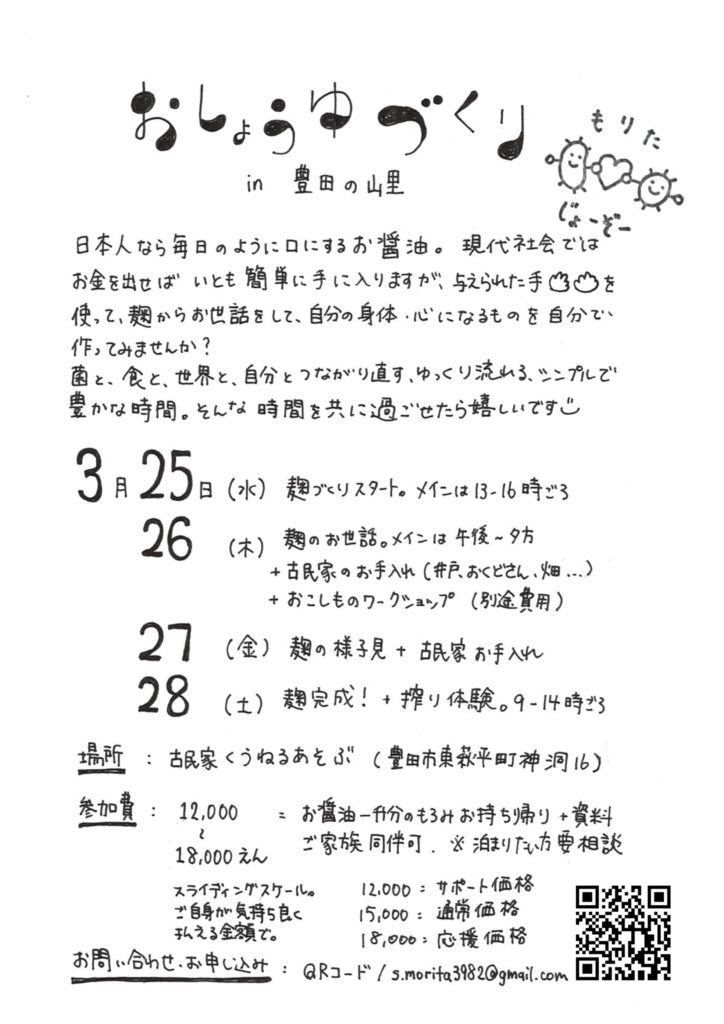 おしょうゆづくり
in 豊田の山里
もりた
じょーぞー
日本人なら毎日のように口にするお醤油。現代社会では
お金を出せば いとも簡単に手に入りますが、与えられた手を
使って、麹からお世話をして、自分の身体・心になるものを自分で
作ってみませんか?
菌と、食と、世界と、自分とつながり直す、ゆっくり流れる、シンプルで
豊かな時間。そんな時間を共に過ごせたら嬉しいです
3月25日(水) 麹づくりスタート。メインは13-16時ごろ
26(木) 麹のお世話。メインは午後~夕方
+古民家のお手入れ(井戸、おくどさん、畑...)
+おこしものワークショップ(別途費用)
27(金) 麹の様子見+古民家お手入れ
28(土) 麹完成!+搾り体験。9-14時ごろ
場所:古民家くうねるあそぶ(豊田市東萩平町神洞16)
参加費:12,000 = お醤油一升分のもろみお持ち帰り+資料
~ ご家族同伴可. ※泊まりたい方要相談
18,000えん
スライディングスケール。 12,000:サポート価格
ご自身が気持ち良く 15,000:通常価格
払える金額で。 18,000:応援価格
お問い合わせ、お申し込み:QRコード/s.morita3982@gmail.com